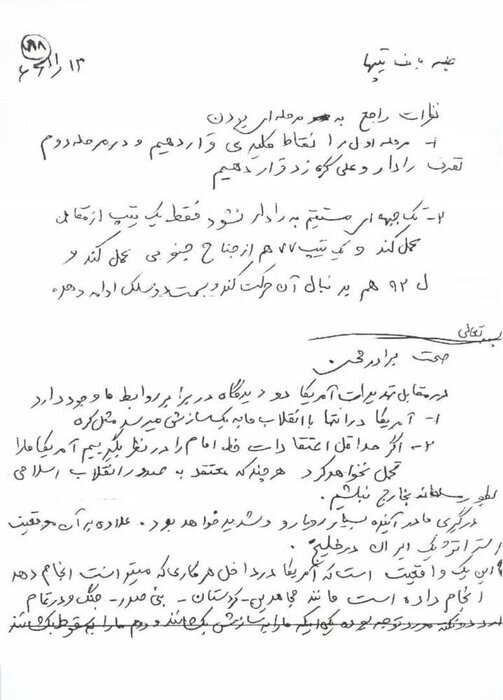 ۹۸
جلسه با ف تیپها
نظرات راجع به دو مرحله ای بودن
۱- مرحله اول را نقاط کلیدی قرار دهیم و در مرحله دوم
تصرف رادار و علی گره زد قرار دهیم
۲- تک جبهه ای مستقیم به رادار نشود فقط یک تیپ از مقابل
عمل کند و تیپ ۷۷ هم از جناح جنوبی عمل کند و
ل ۹۲ هم به دنبال آن حرکت کند و بسمت دوسلک ادامه دهد
بسمه تعالی
صحبت برادر محسن
در مقابل تهدیدات آمریکا دو دیدگاه در برابر روابط ما وجود دارد
۱- آمریکا در انتها با انقلاب ما به یک سازش می رسد مثل کره
۲- اگر حداقل اعتقادات خط امام را در نظر بگیریم آمریکا ما را
تحمل نخواهد کرد هر چند که معتقد به صدور انقلاب اسلامی
بطور مسلحانه بخارج نباشیم.
درگیری ما در آینده بسیار رویارو و شدید خواهد بود. علاوه بر آن موقعیت
استراتژیک ایران در خلیج.
این یک واقعیت است که آمریکا در داخل هر کاری که میتوانست انجام دهد
انجام داده است مانند مجاهدین - کردستان - بنی صدر - جنگ و در تمام
مورد توجه بوده یکی اینکه ما را به سازش بکشانند و دوم ما را به سقوط بکشانند